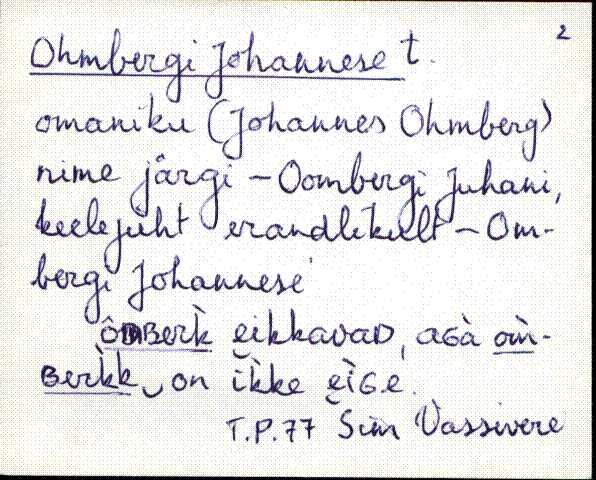 2
Ohmbergi Johannese t.
omaniku (Johannes Ohmberg)
nime järgi – Oombergi Juhani,
keelejuht erandlikult – Om-
bergi Johannese
ômBerk̀ eikkavaD, aGà om̀-
Berk̀k on ìkke eìGe.
T.P.77 Sim Vassivere